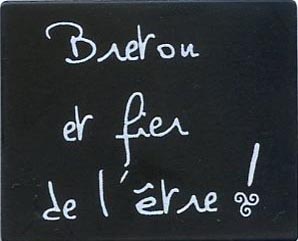 Breton
et fier
de l'être !